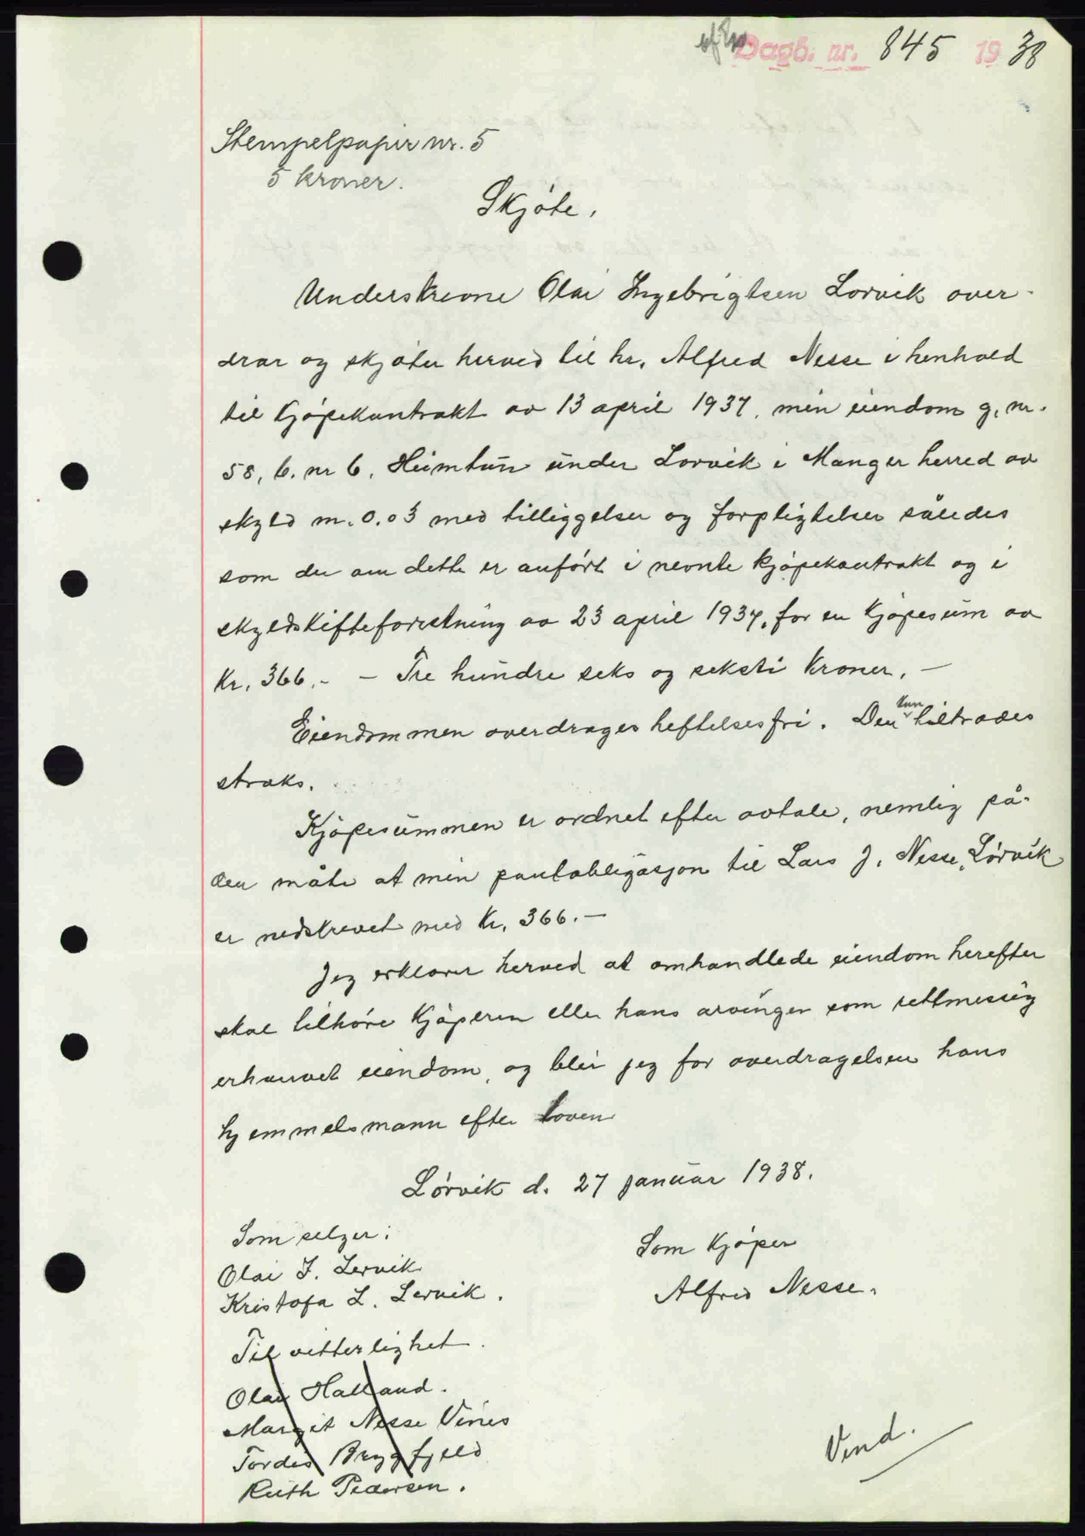 Dagb. nr. 845 1938
Stempelpapir nr. 5
5 kroner.
Skjøte.
Underskrevne Olai Ingebrigtsen Lorvik over-
drar og skjøter herved til hr. Alfred Nesse i henhold
til kjøpekontrakt av 13 april 1937, min eiendom g. nr.
58, b. nr 6, Heimtun under Lorvik i Manger herred av
skyld m. 0.03 med tilliggelser og forpligtelser således
som der om dette er anført i nevnte kjøpekontrakt og i
skyldskifteforretning av 23 april 1937, for en kjøpesum av
Kr. 366.- - Tre hundre seks og seksti kroner. -
Eiendommen overdrages heftelsesfri. Den kan tiltrædes
straks.
Kjøpesummen er ordnet efter avtale, nemlig på
den måte at min pantobligasjon til Lars J. Nesse, Lørvik
er nedskrevet med Kr. 366.-
Jeg erklærer herved at omhandlede eiendom herefter
skal tilhøre kjøperen eller hans arvinger som rettmessig
erhvervet eiendom, og blir jeg for overdragelsen hans
hjemmelsmann efter loven
Lørvik d. 27 januar 1938.
Som selger:
Olai I. Lervik
Kristofa L. Lervik.
Som kjøper
Alfred Nesse.
Til vitterlighet.
Olai Halland.
Margit Nesse Vines
Tordis Bryggfjeld
Ruth Pedersen.
Vend.